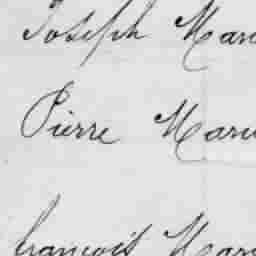 Joseph Mari
Pierre Marie
françois Mari